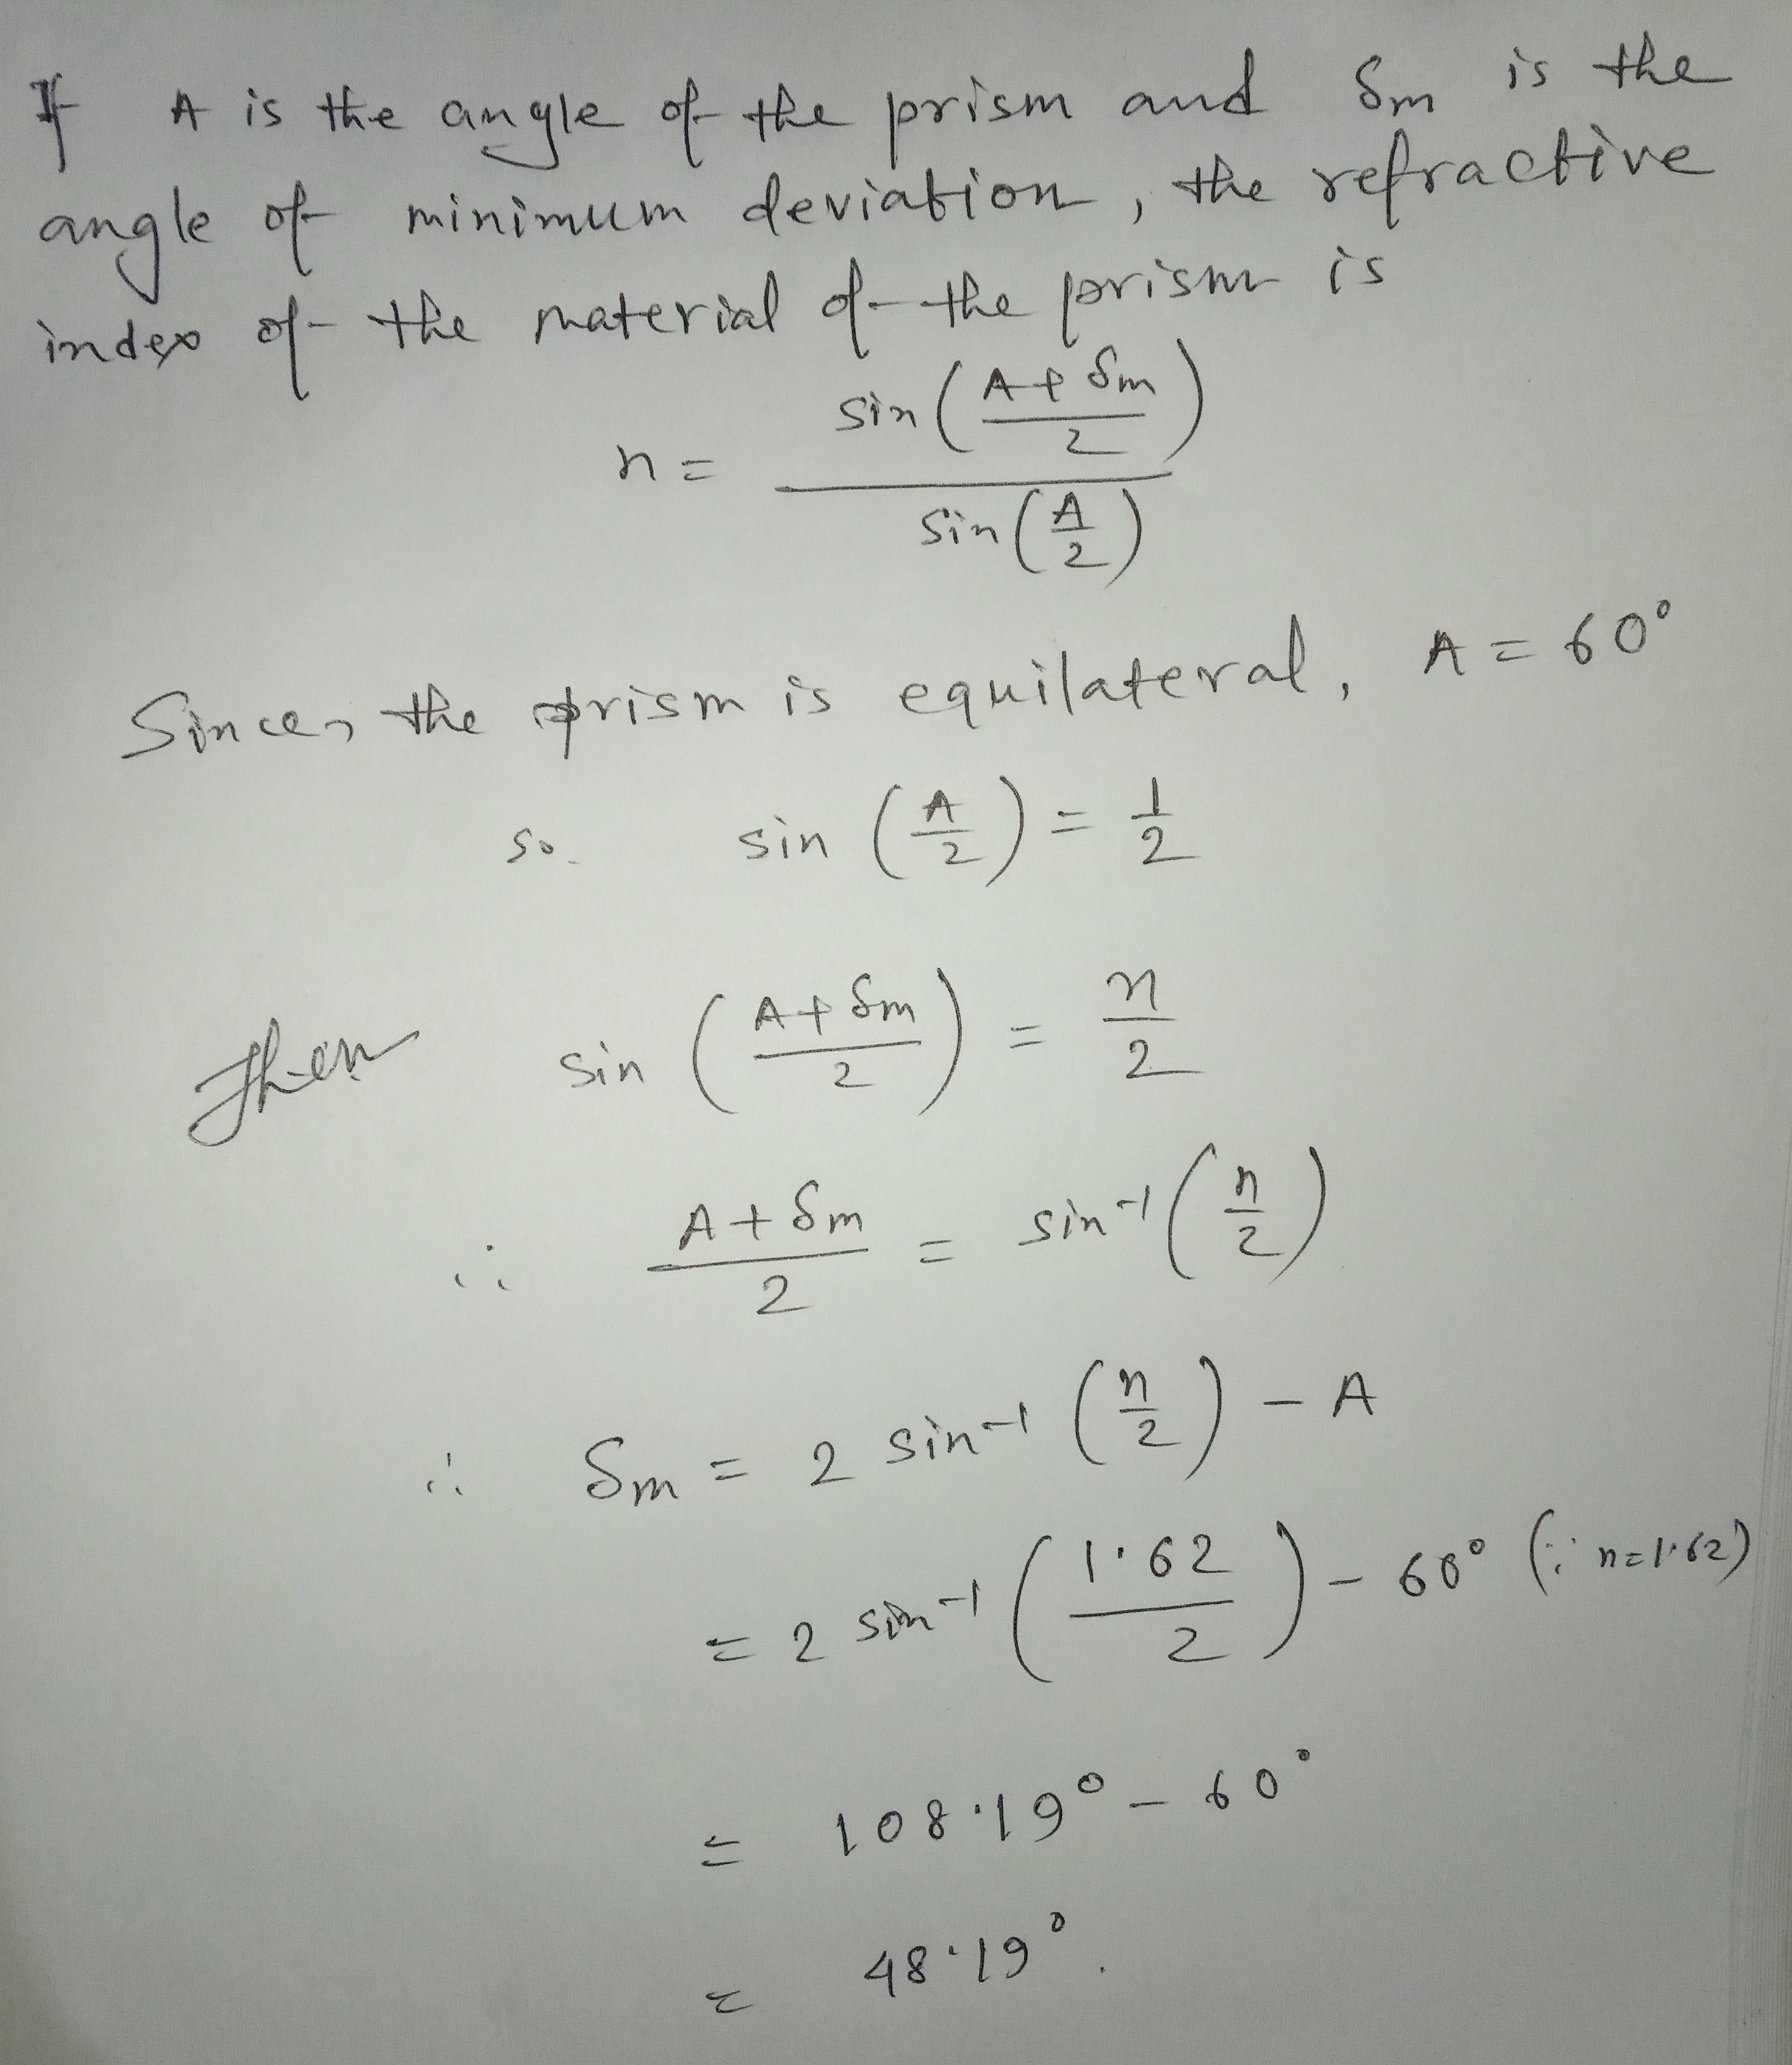 If A is the angle of the prism and δm is the
angle of minimum deviation, the refractive
index of the material of the prism is
n = sin((A+δm)/2) / sin(A/2)
Since, the prism is equilateral, A = 60°
so. sin (A/2) = 1/2
Then sin ((A+δm)/2) = n/2
∴ (A+δm)/2 = sin⁻¹(n/2)
∴ δm = 2 sin⁻¹ (n/2) - A
= 2 sin⁻¹ (1·62/2) - 60° (∵ n=1·62)
= 108·19° - 60°
= 48·19°.